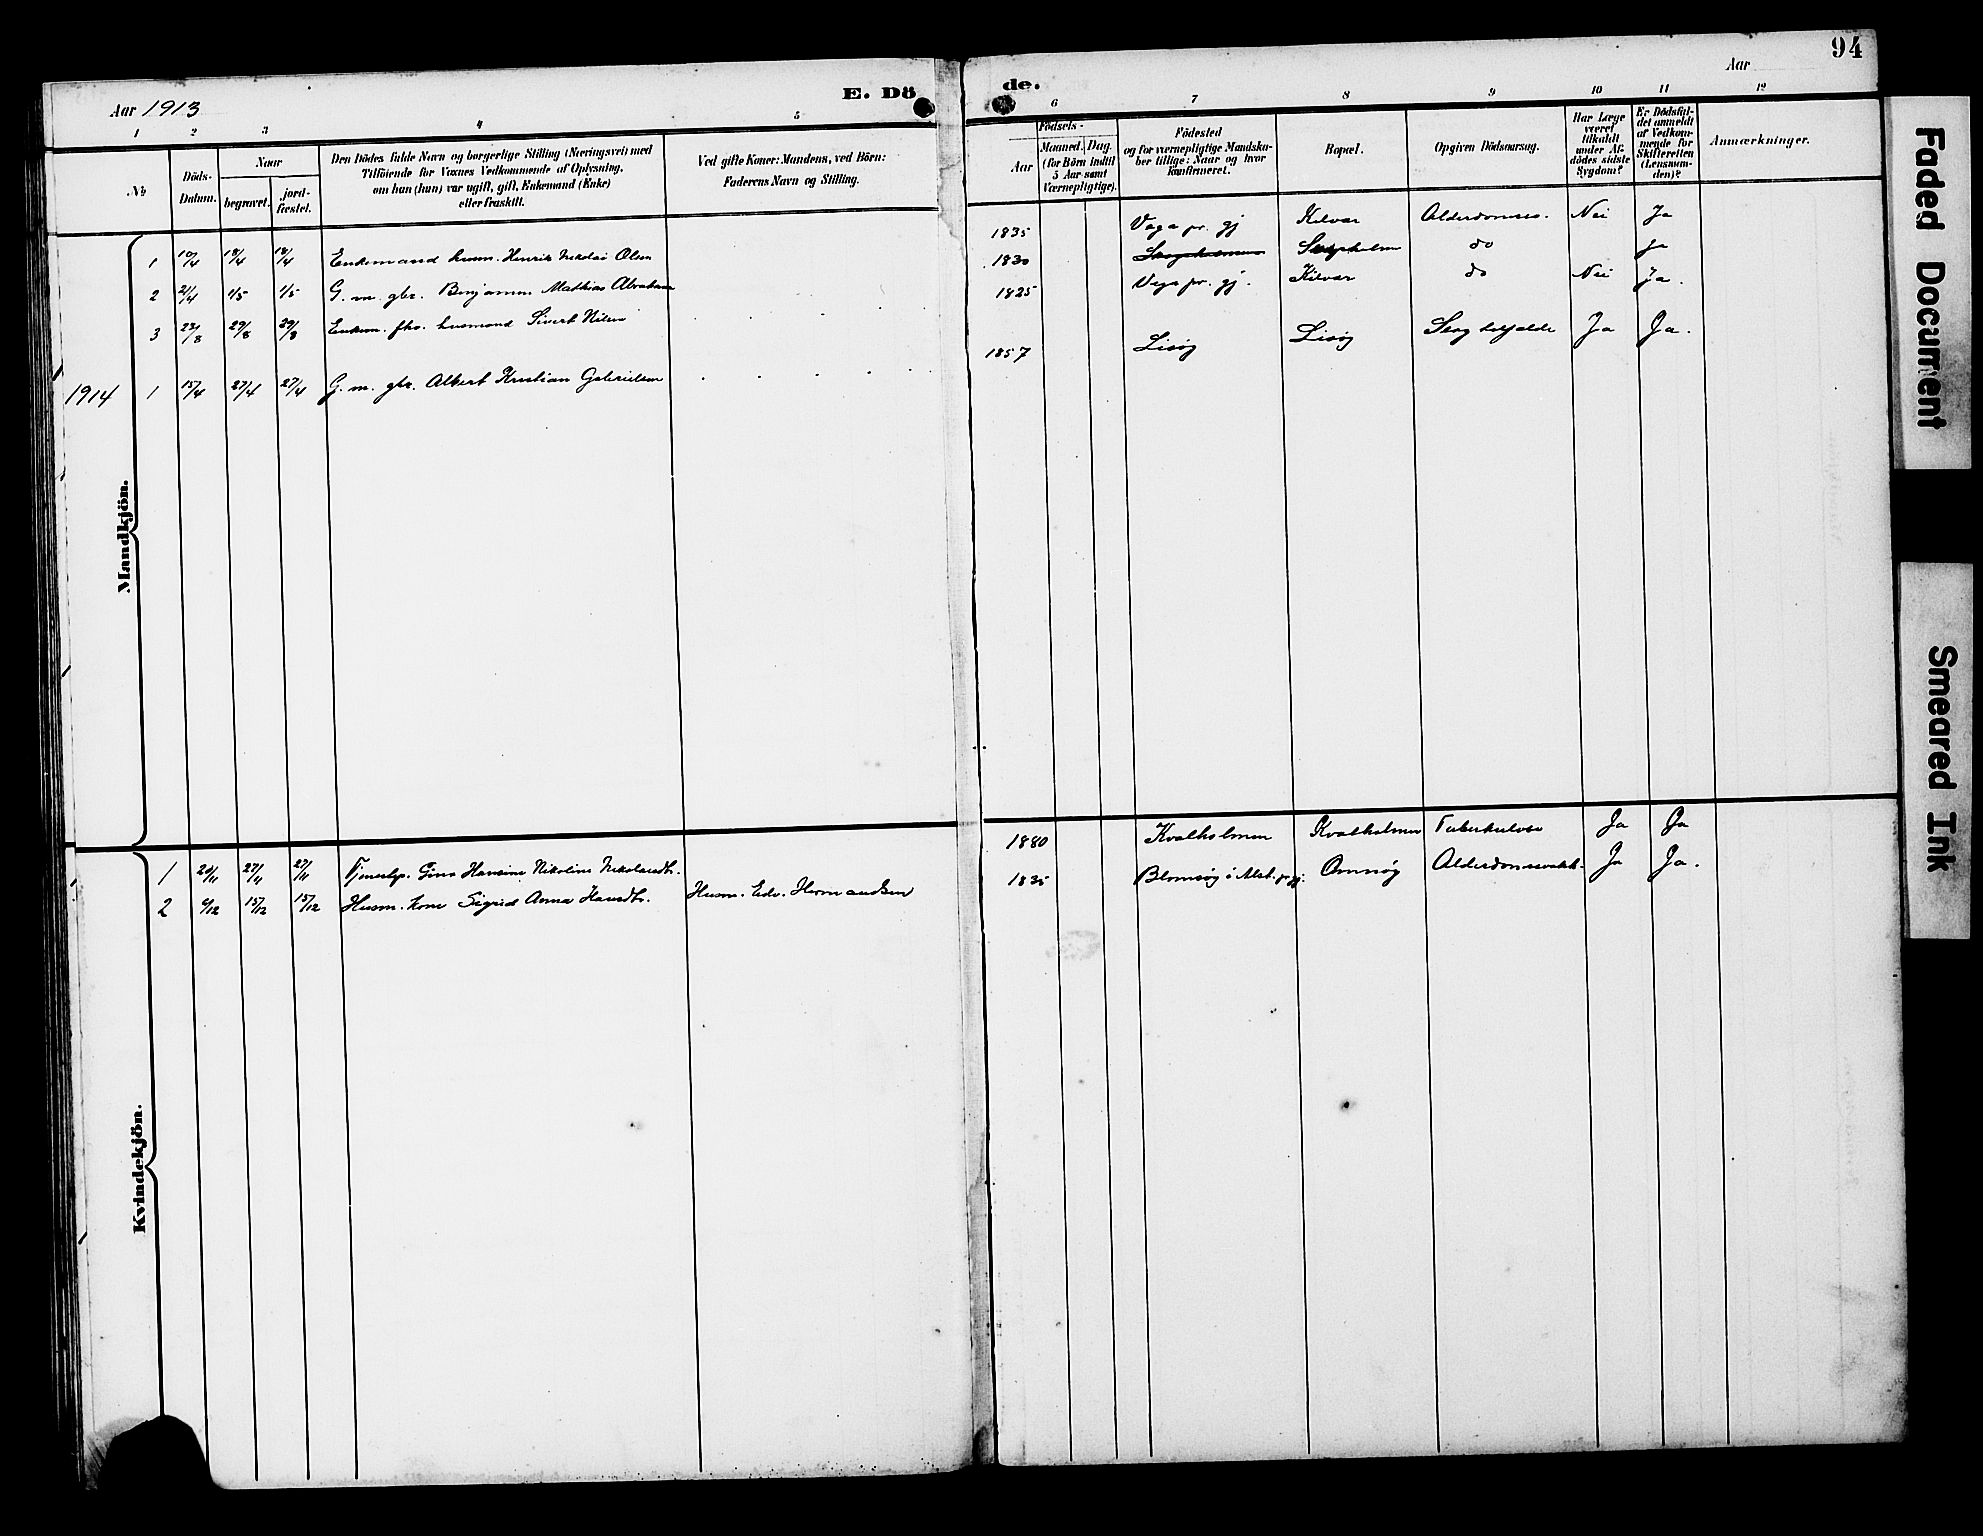 94
E. Dö
de.
Aar 1913
Aar
1 2 3 4 5
6 7 8 9 10 11 12
№
Döds-
Datum.
Naar
begravet.
jord-
fæstet.
Den Dödes fulde Navn og borgerlige Stilling (Næringsvei) med
Tilföiende for Voxnes Vedkommende af Oplysning,
om han (hun) var ugift, gift, Enkemand (Enke)
eller fraskilt.
Ved gifte Koner: Mandens, ved Börn:
Faderens Navn og Stilling.
Födsels-
Aar
Maaned.
Dag.
(for Börn indtil
5 Aar samt
Værnepligtige).
Födested
og for værnepligtige Mandska-
ber tillige: Naar og hvor
konfirmeret.
Bopæl.
Opgiven Dödsaarsag.
Har Læge
været
tilkaldt
under Af-
dödes sidste
Sygdom?
Er Dödsfal-
det anmeldt
af Vedkom-
mende for
Skifteretten
(Lensman-
den)?
Anmærkninger.
Mandkjön.
1 10/4 18/4 18/4 Enkemand husm. Henrik Nikolai Olsen 1835 Vega pr. gj Kilvær Alderdomssv. Nei Ja
2 21/4 1/5 1/5 G. m. gbr. Benjamin Mathias Abraham 1830 Skogsholmen Skogsholmen do Ja
3 23/8 29/8 29/8 Enkem. fhv. husmand Sivert Nilsen 1825 Vega pr. gj. Kilvær do Nei Ja.
1914 1 15/4 27/4 27/4 G. m. gbr. Albert Kristian Gabrielsen 1857 Lisøy Lisøy Ja Ja.
Kvindekjön.
1 20/11 27/11 27/11 Tjenestp. Gina Hansine Nikoline Nikolaisdtr. 1880 Kvalholmen Kvalholmen Tuberkulose Ja Ja
2 6/12 15/12 15/12 Husm. kone Sigrid Anna Hansdtr. Husm. Edv. Hermandsen 1835 Blomsøy i Alst. pr. gj. Omnøy Alderdomssvakh. Ja Ja.
Faded Document
Smeared Ink